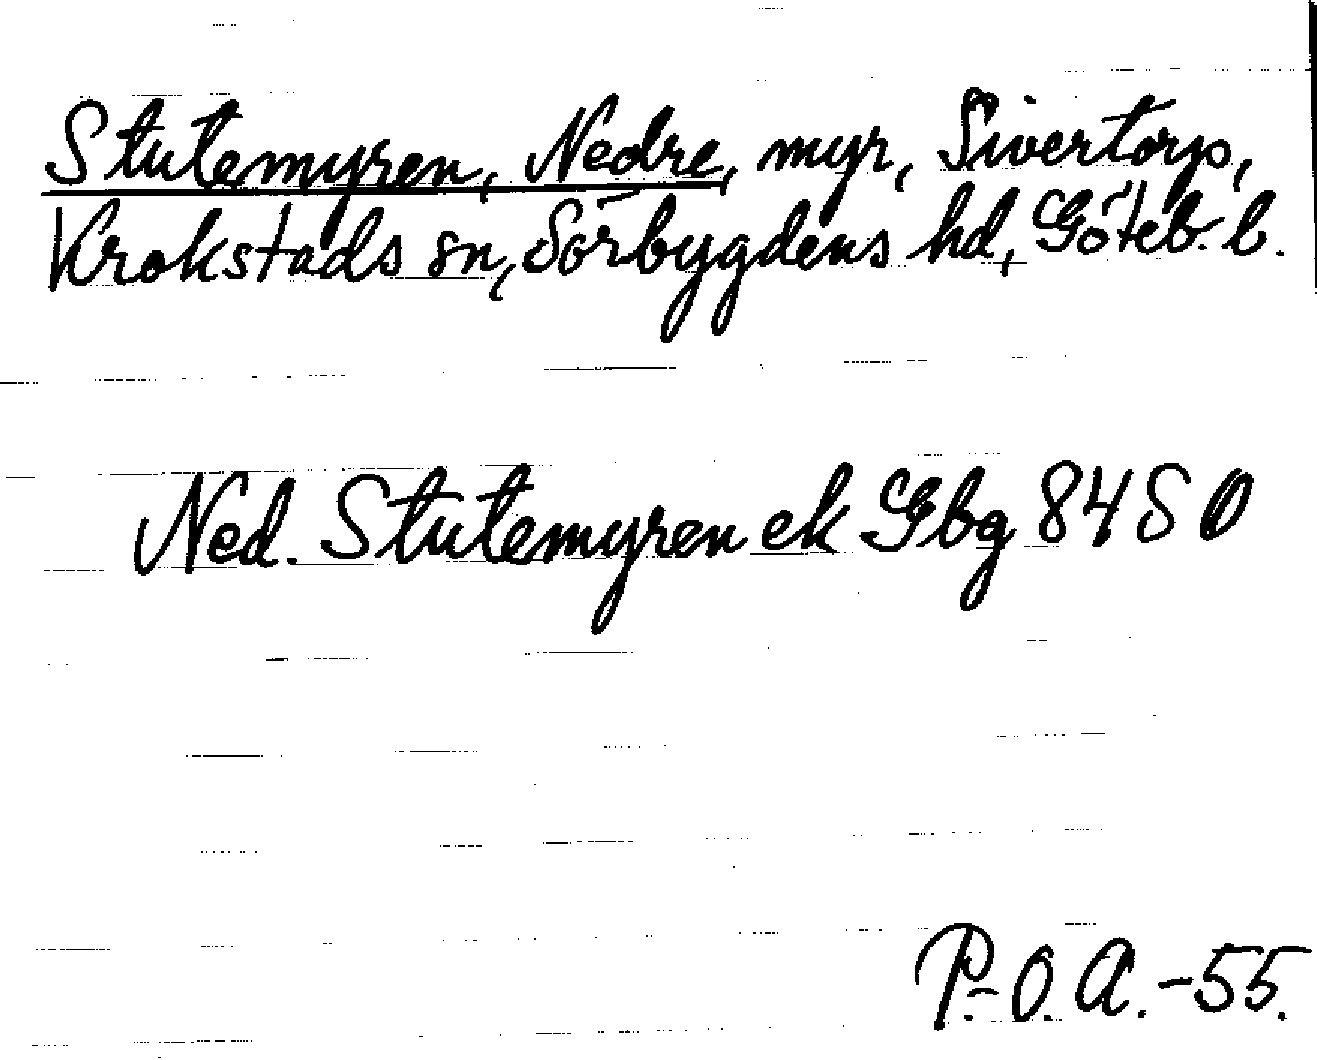 Stutemyren, Nedre, myr, Sivertorp,
Krokstads sn, Sörbygdens hd, Göteb. l.
Ned. Stutemyren ek Gbg 8480
P.-O. A. -55.